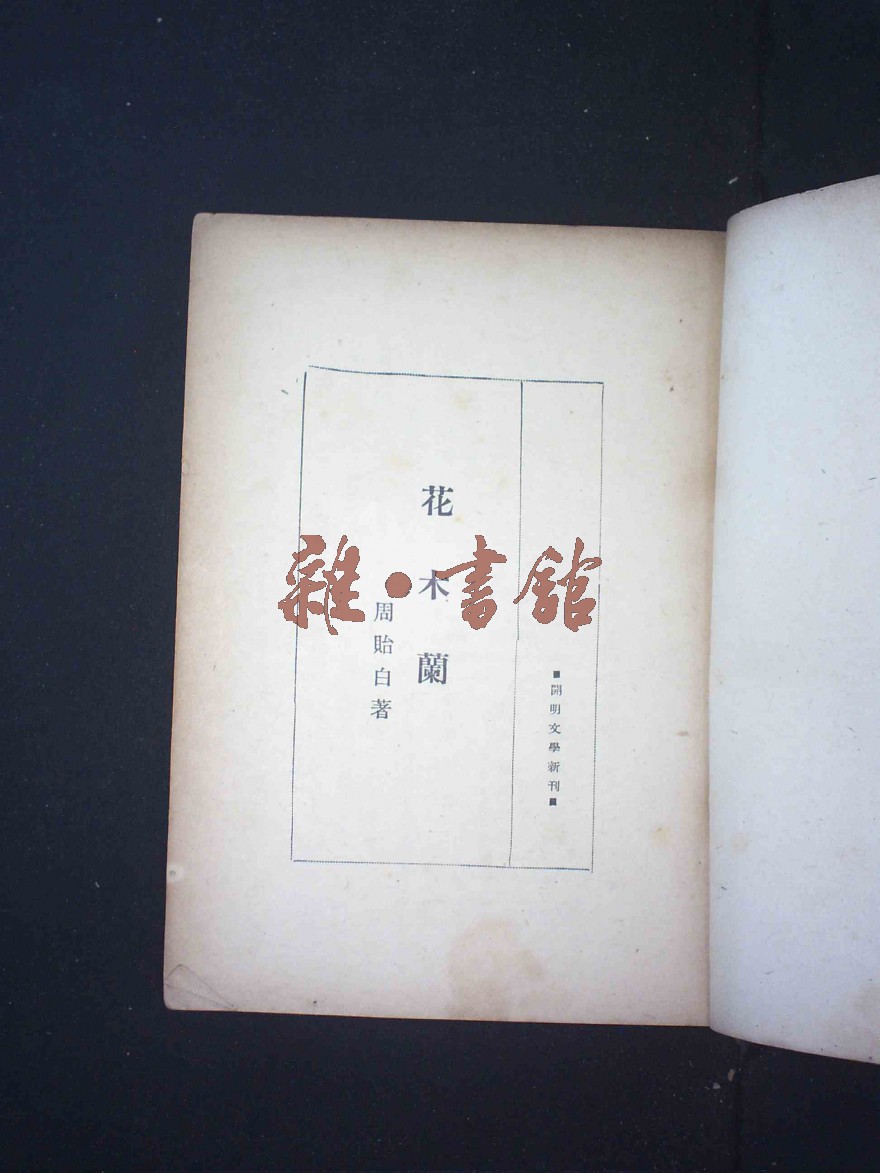 ■開明文學新刊■
花木蘭
周貽白著
雜•書館